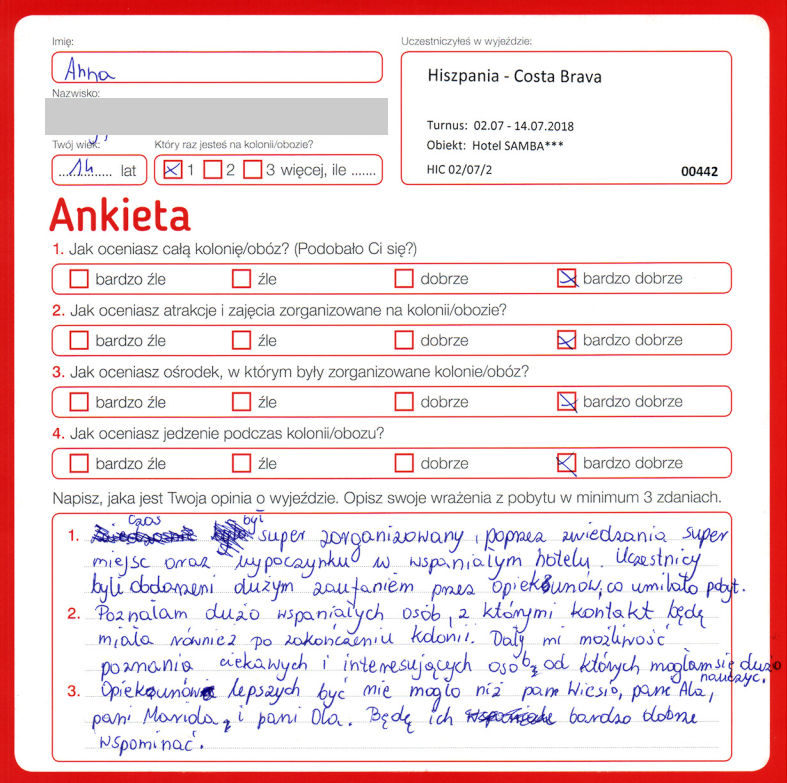 Imię:
Anna
Nazwisko:
Twój wiek:
14 lat
Który raz jesteś na kolonii/obozie?
1 2 3 więcej, ile .......
Uczestniczyłeś w wyjeździe:
Hiszpania - Costa Brava
Turnus: 02.07 - 14.07.2018
Obiekt: Hotel SAMBA***
HIC 02/07/2 00442
Ankieta
1. Jak oceniasz całą kolonię/obóz? (Podobało Ci się?)
bardzo źle źle dobrze bardzo dobrze
2. Jak oceniasz atrakcje i zajęcia zorganizowane na kolonii/obozie?
bardzo źle źle dobrze bardzo dobrze
3. Jak oceniasz ośrodek, w którym były zorganizowane kolonie/obóz?
bardzo źle źle dobrze bardzo dobrze
4. Jak oceniasz jedzenie podczas kolonii/obozu?
bardzo źle źle dobrze bardzo dobrze
Napisz, jaka jest Twoja opinia o wyjeździe. Opisz swoje wrażenia z pobytu w minimum 3 zdaniach.
1. Czas był super zorganizowany, poprzez zwiedzania super
miejsc oraz wypoczynku w wspaniałym hotelu. Uczestnicy
byli obdarzeni dużym zaufaniem przez opiekunów, co umilało pobyt.
2. Poznałam dużo wspaniałych osób, z którymi kontakt będę
miała również po zakończeniu kolonii. Dały mi możliwość
poznania ciekawych i interesujących osób, od których mogłam się dużo
nauczyć.
3. Opiekunów lepszych być nie mogło niż pan Wiesio, pani Ala,
pani Mariola, i pani Ola. Będę ich bardzo dobrze
wspominać.